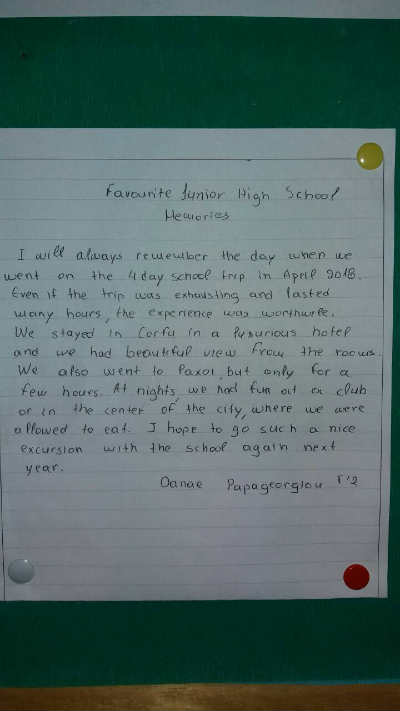 Favourite Junior High School
Memories
I will always remember the day when we
went on the 4 day school trip in April 2018.
Even if the trip was exhausting and lasted
many hours, the experience was worthwile.
We stayed in Corfu in a luxurious hotel
and we had beautiful view from the rooms.
We also went to Paxoi, but only for a
few hours. At nights, we had fun at a club
or in the center of the city, where we were
allowed to eat. I hope to go such a nice
excursion with the school again next
year.
Danae Papageorgiou Γ'2